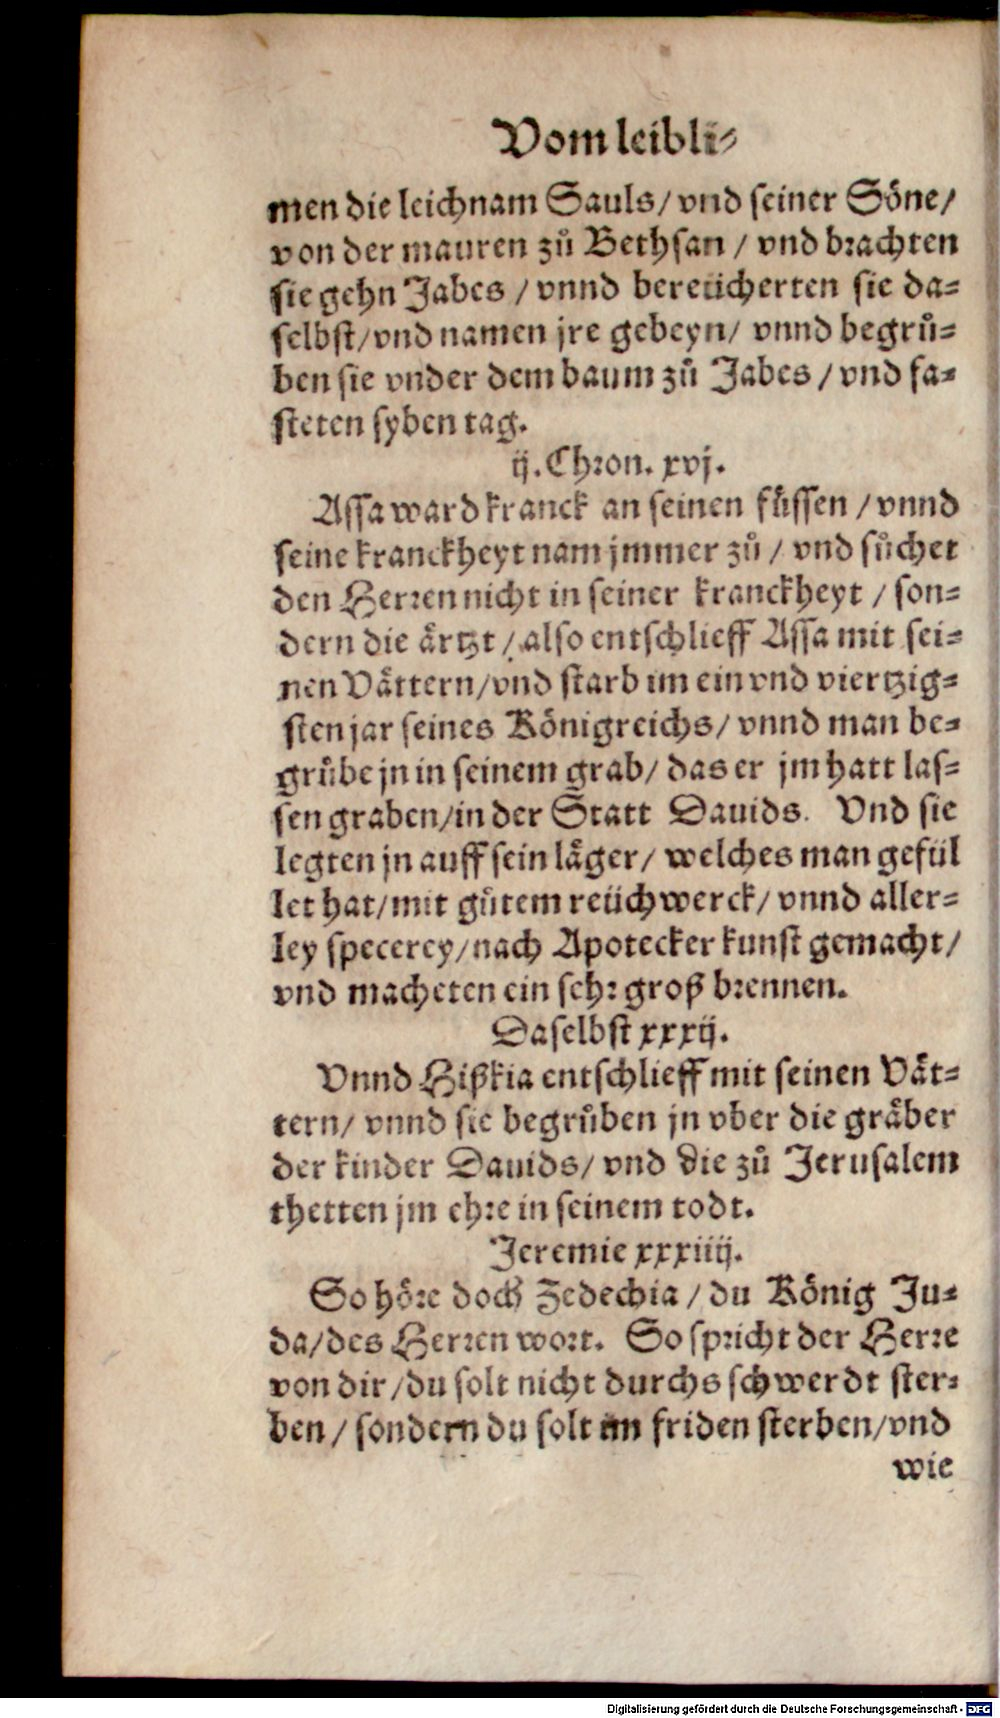 Vom leibli⸗
men die leichnam Sauls/ vnd seiner Söne/
von der mauren zů Bethsan / vnd brachten
sie gehn Jabes / vnnd bereücherten sie da⸗
selbst/ vnd namen jre gebeyn/ vnnd begrů⸗
ben sie vnder dem baum zů Jabes / vnd fa⸗
steten syben tag.
ij. Chron. xvj.
Assa ward kranck an seinen füssen / vnnd
seine kranckheyt nam jmmer zů / vnd sůchet
den Herren nicht in seiner kranckheyt / son⸗
dern die ärtzt / also entschlieff Assa mit sei⸗
nen Vättern/ vnd starb im ein vnd viertzig⸗
sten jar seines Königreichs/ vnnd man be⸗
grůbe jn in seinem grab/ das er jm hatt las⸗
sen graben/ in der Statt Dauids. Vnd sie
legten jn auff sein läger/ welches man gefül
let hat/ mit gůtem reüchwerck/ vnnd aller⸗
ley specerey/ nach Apotecker kunst gemacht/
vnd macheten ein sehr groß brennen.
Daselbst xxxij.
Vnnd Hißkia entschlieff mit seinen Vät⸗
tern/ vnnd sie begrůben jn vber die gräber
der kinder Dauids/ vnd die zů Jerusalem
thetten jm ehre in seinem todt.
Jeremie xxxiiij.
So höre doch Zedechia / du König Ju⸗
da/ des Herren wort. So spricht der Herre
von dir / du solt nicht durchs schwerdt ster⸗
ben / sondern du solt im friden sterben/ vnd
wie
Digitalisierung gefördert durch die Deutsche Forschungsgemeinschaft - DFG